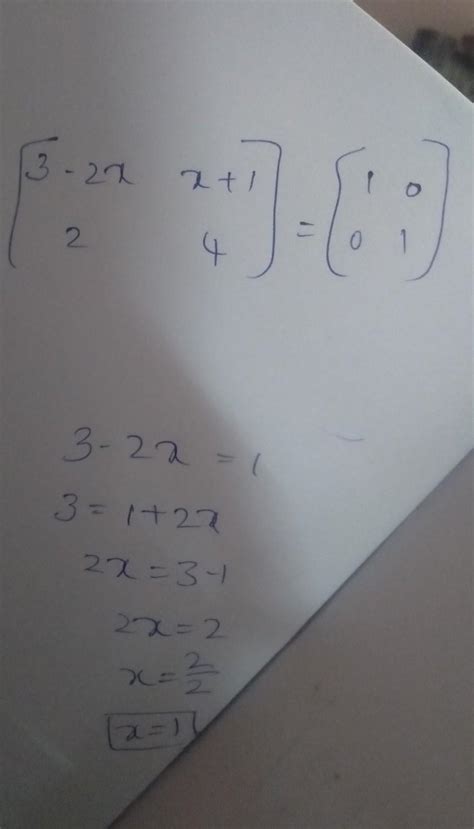 [3-2x x+1] = [1 0]
[2 4] [0 1]
3-2x = 1
3 = 1+2x
2x = 3-1
2x = 2
x = 2/2
x = 1